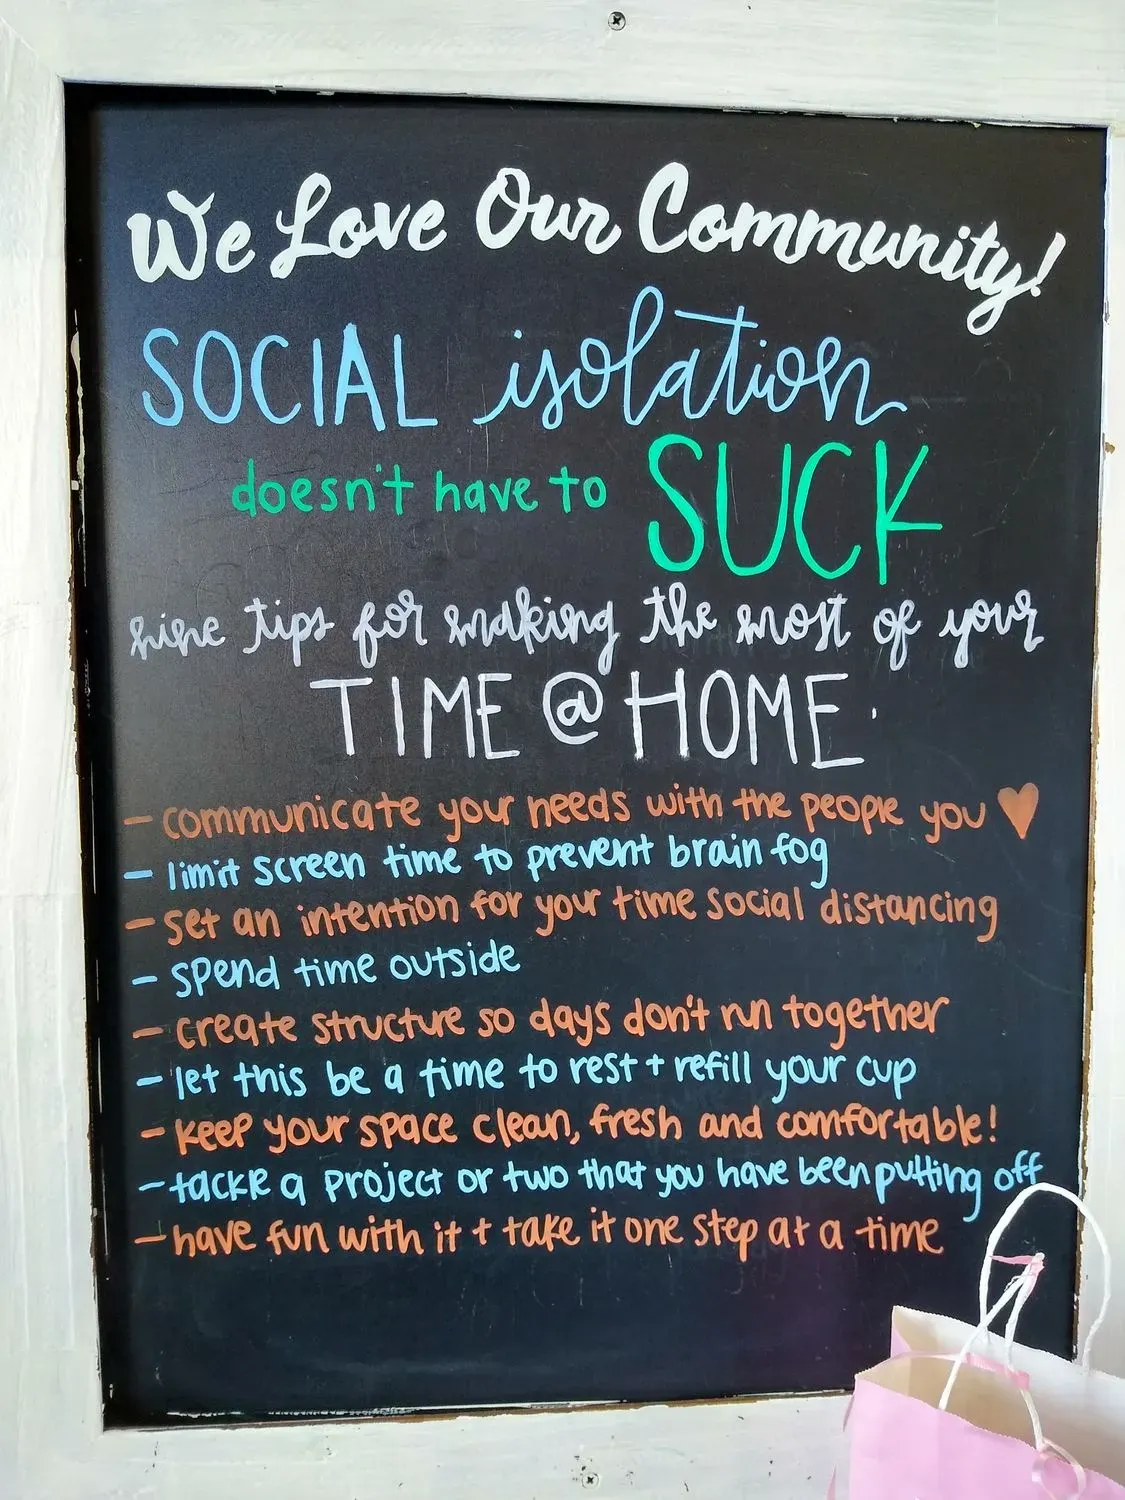 We Love Our Community!
SOCIAL isolation
doesn't have to SUCK
nine tips for making the most of your
TIME @ HOME.
- communicate your needs with the people you ♥
- limit screen time to prevent brain fog
- set an intention for your time social distancing
- spend time outside
- create structure so days don't run together
- let this be a time to rest + refill your cup
- keep your space clean, fresh and comfortable!
- tackle a project or two that you have been putting off
- have fun with it + take it one step at a time